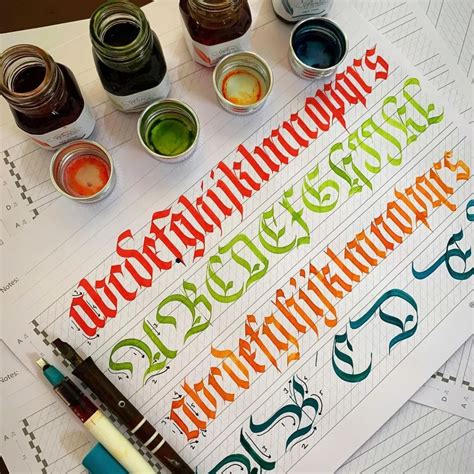 abcdefghijklmnopqrs
ABCDEFGHIJKL
abcdefghijklmnopqrs
AB CD E
Notes:
Notes: